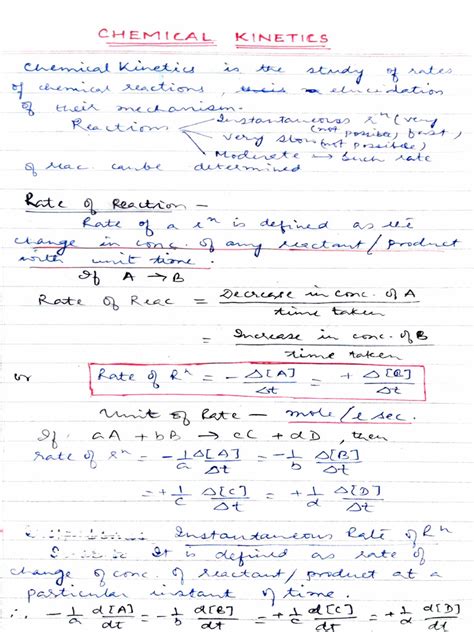 CHEMICAL KINETICS
Chemical Kinetics is the study of rates
of chemical reactions, elucidation
of their mechanism.
Reactions Instantaneous rⁿ (very
(not possible) fast,
very slow (not possible)
Moderate → Such rate
of reac. can be determined
Rate of Reaction –
Rate of a rⁿ is defined as the
change in conc. of any reactant/product
with unit time.
If A → B
Rate of Reac = Decrease in conc. of A / time taken
= Increase in conc. of B / time taken
or Rate of Rⁿ = - Δ[A]/Δt = + Δ[B]/Δt
Unit of Rate – mole/l sec.
If aA + bB → cC + dD, then
rate of rⁿ = - 1/a Δ[A]/Δt = - 1/b Δ[B]/Δt
= + 1/c Δ[C]/Δt = + 1/d Δ[D]/Δt
Instantaneous Rate of Rⁿ
It is defined as rate of
change of conc. of reactant/product at a
particular instant of time.
∴ - 1/a d[A]/dt = - 1/b d[B]/dt = + 1/c d[C]/dt = + 1/d d[D]/dt